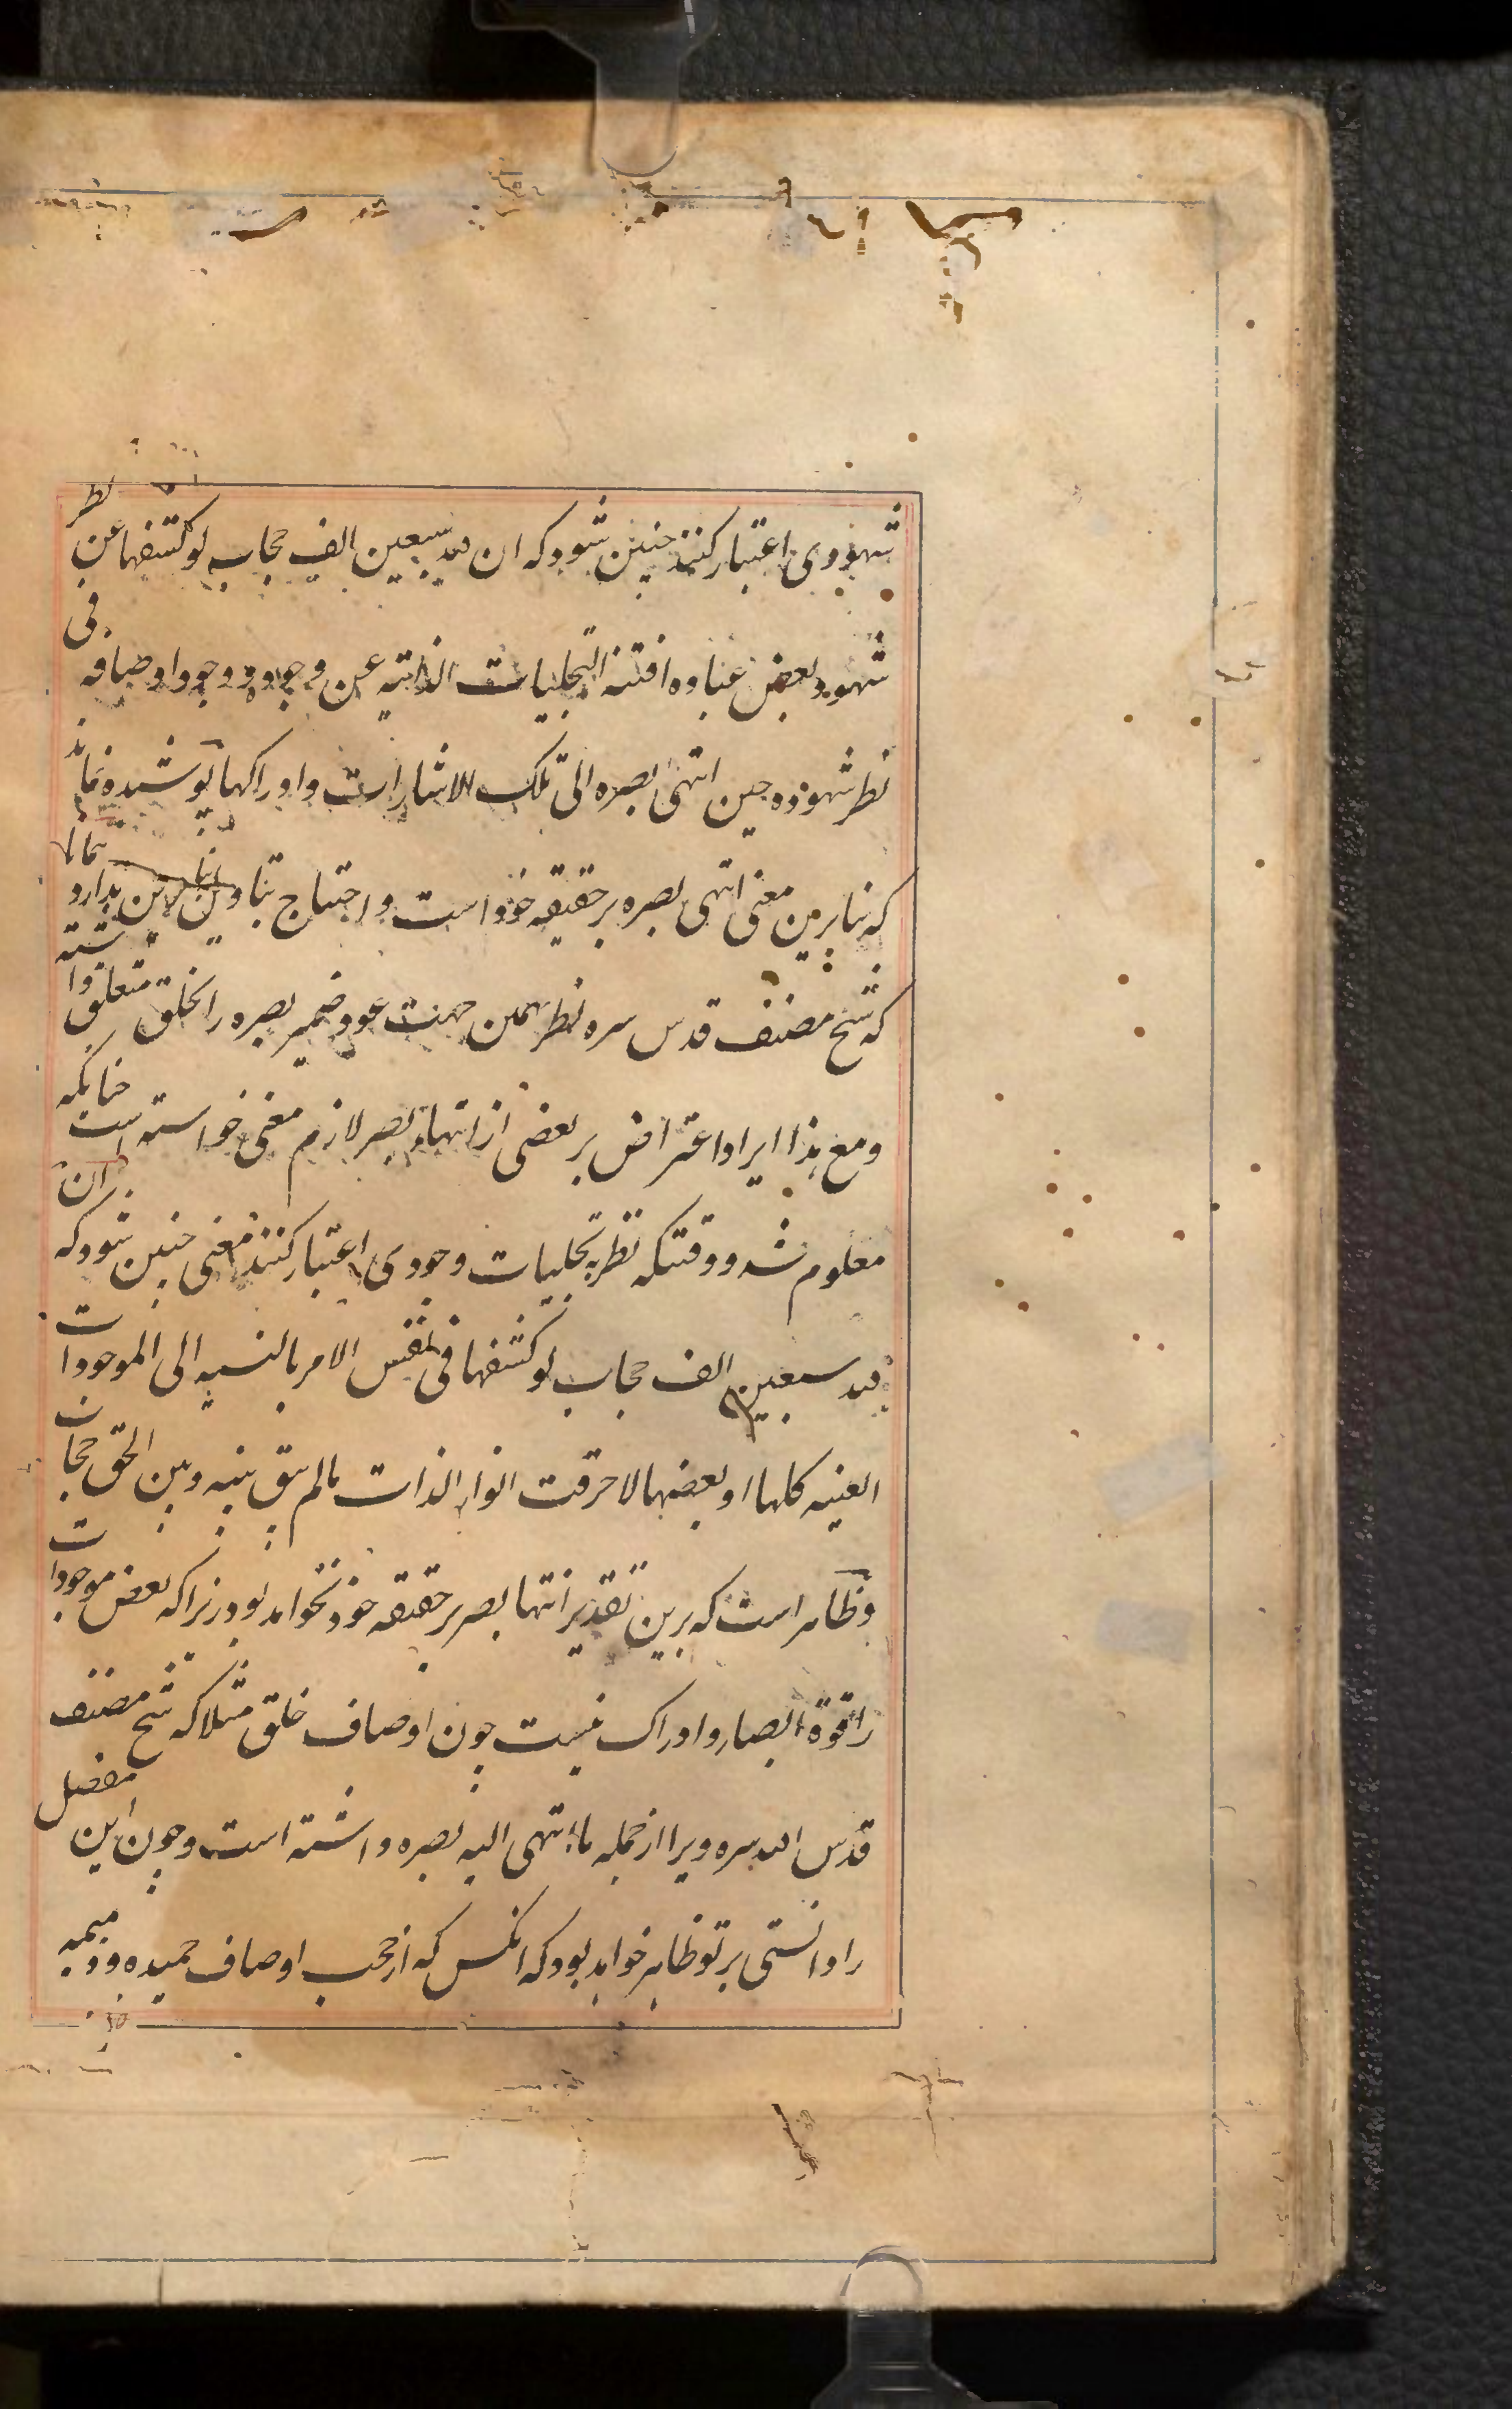 شهودی اعتبار کنند چنین شود که ان لله سبعین الف حجاب لو کشفها عن نظر
شهود بعض عباده افتته التجلیات الذاتیه عن وجوده و وجود اوصافه فی
نظر شهوده حین انتهی بصره الی تلک الاشارات و ادراکها پوشیده نماند
که بنابرین معنی انتهی بصره بر حقیقه خود است و احتیاج بتاویل ندارد
که شیخ مصنف قدس سره نظر بهمین جهت عود ضمیر بصره را بخلق متعلق داشته
و مع هذا ایراد اعتراض بر بعضی از انتهاء بصر لازم معنی خواسته است چنانکه
معلوم شد و وقتیکه نظر به تجلیات وجودی اعتبار کنند معنی چنین شود که ان
لله سبعین الف حجاب لو کشفها فی نفس الامر بالنسبه الی الموجودات
العینیه کلها او بعضها لاحرقت انوار الذات مالم یبق بینه و بین الحق حجاب
و ظاهر است که برین تقدیر انتها بصر بر حقیقه خود نخواهد بود زیرا که بعض موجودات
را قوة ابصار و ادراک نیست چون اوصاف خلق مثلا که شیخ مصنف
قدس الله سره ویرا از جمله ما انتهی الیه بصره داشته است و چون این مفصل
را دانستی بر تو ظاهر خواهد بود که انکس که از حجب اوصاف حمیده و ذمیمه